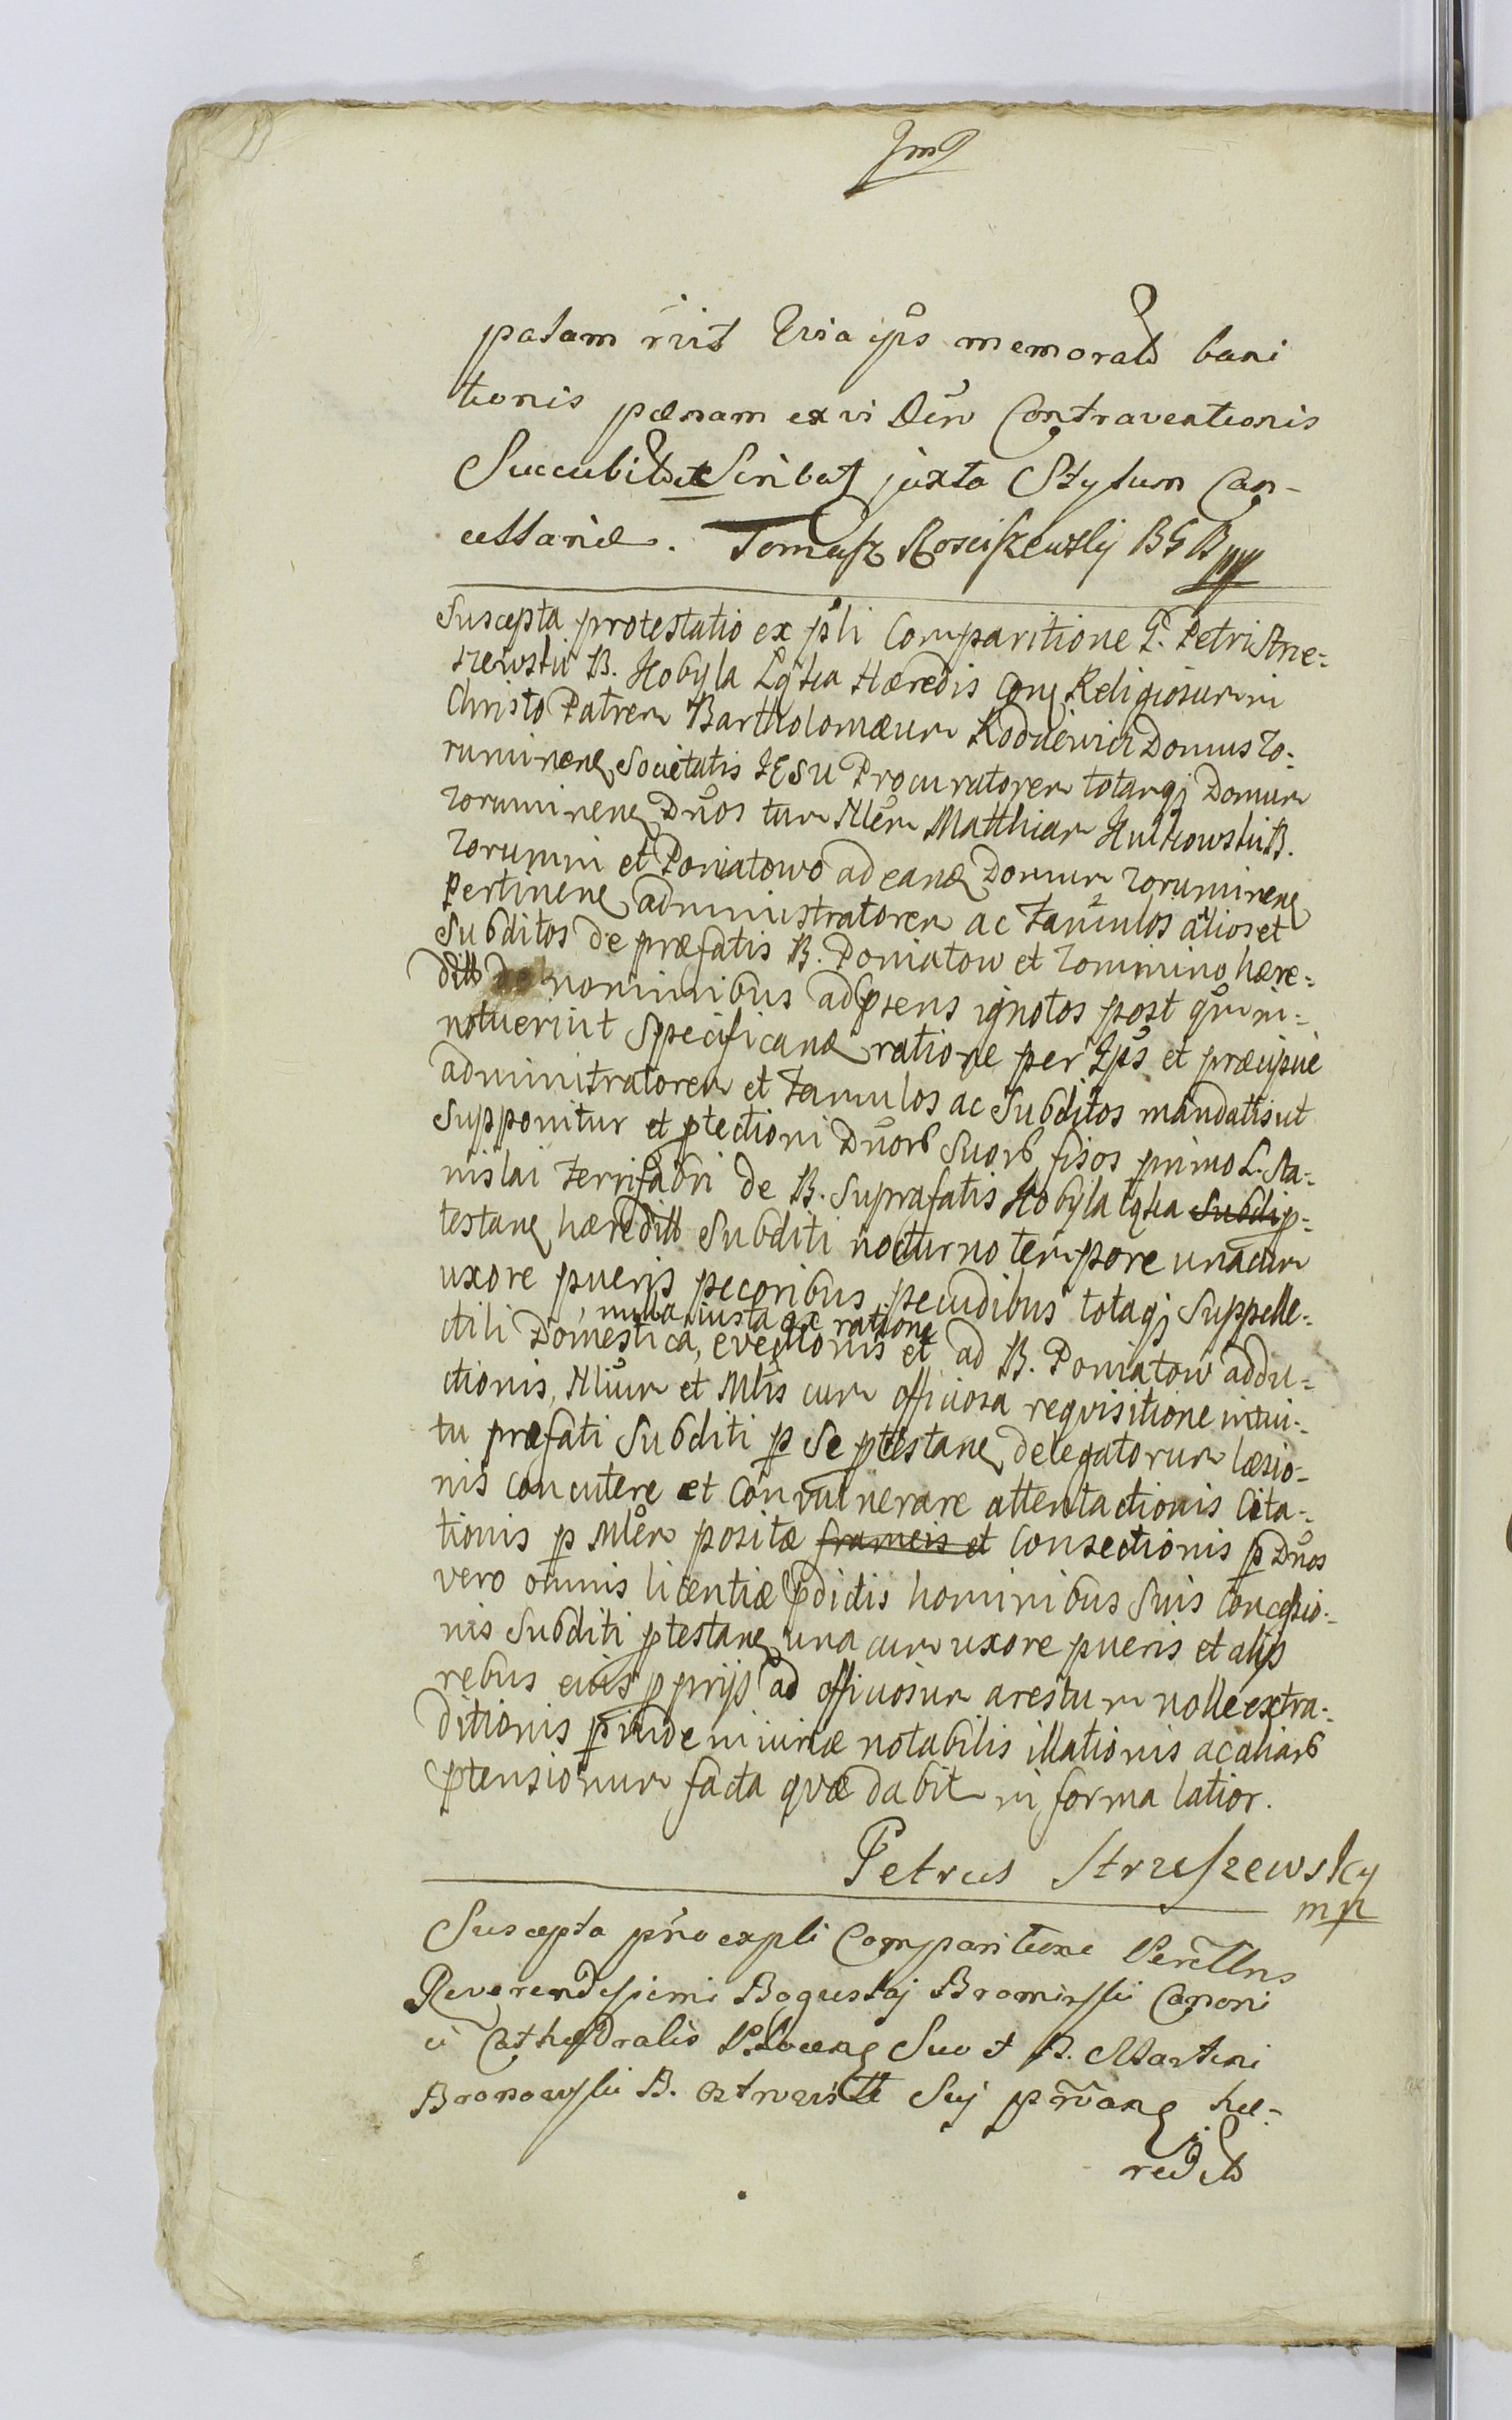 patam rüt Uria ips memoratæ bani
tionis pænam ex vi Dün Contraventionis
Succubitæ Scribat juxta Stylum Can-
cellariæ. Tomasz Kosciszewsky BGB mp
Suscepta protestatio ex pli Comparitione G. Petri Strze-
szewski B. Kobyla Ląka Hæredis Conq Religiosum in
Christo Patrem Bartholomæum Domus Zo-
ruminenq Societatis JESU Procuratorem totamqj Domum
Zoruminenq Dnos tum Nlem Matthiam Hutkowski B.
Zorumin et Poniatowo ad eanq Domum Zoruminenq
Pertinenq administratorem ac Famulos alios et
Subditos de præfatis B. Poniatow et Zorumino hære-
ditt de nominibus ad præsens ignotos post qm in-
notuerint Specificanq ratione per Ips et præcipue
administratorem et Famulos ac Subditos mandatis ut
Supponitur et ptectioni Dnorb Suorb fisos primo L. Sta-
nislai Ferrifabri de B. Suprafatis Kobyla Ląka Subdi p-
testanq hæreditt Subditi nocturno tempore una cum
uxore pueris pecoribus pecudibus totaqj Suppelle-
nulla iusta ex ratione
ctili Domestica, evectionis et ad B. Poniatow addu-
ctionis, Nlium et Mltis cum officiosa requisitione intui-
tu præfati Subditi p Se ptestanq delegatorum læsio-
nis concutere et Convulnerare attentactionis Cita-
tionis p Mlem positæ frameis et Consectionis p Dnos
vero omnis licentiæ pdictis hominibus Suis Concessio-
nis Subditi ptestanq una cum uxore pueris et alijs
rebus eius pprijs ad officiosum arestum nolle extra-
ditionis pinde iniuriæ notabilis illationis ac aliarb
ptensionum facta quæ dabit in forma latior.
Petrus Strzeszewsky
mp
Suscepta pno ex pli Comparitione Perillris
Reverendissimi Bogustaj Canoni
ci Cathedralis Plocenq Suo et R. Martini
B. Suj pnoanq hæ-
reditt